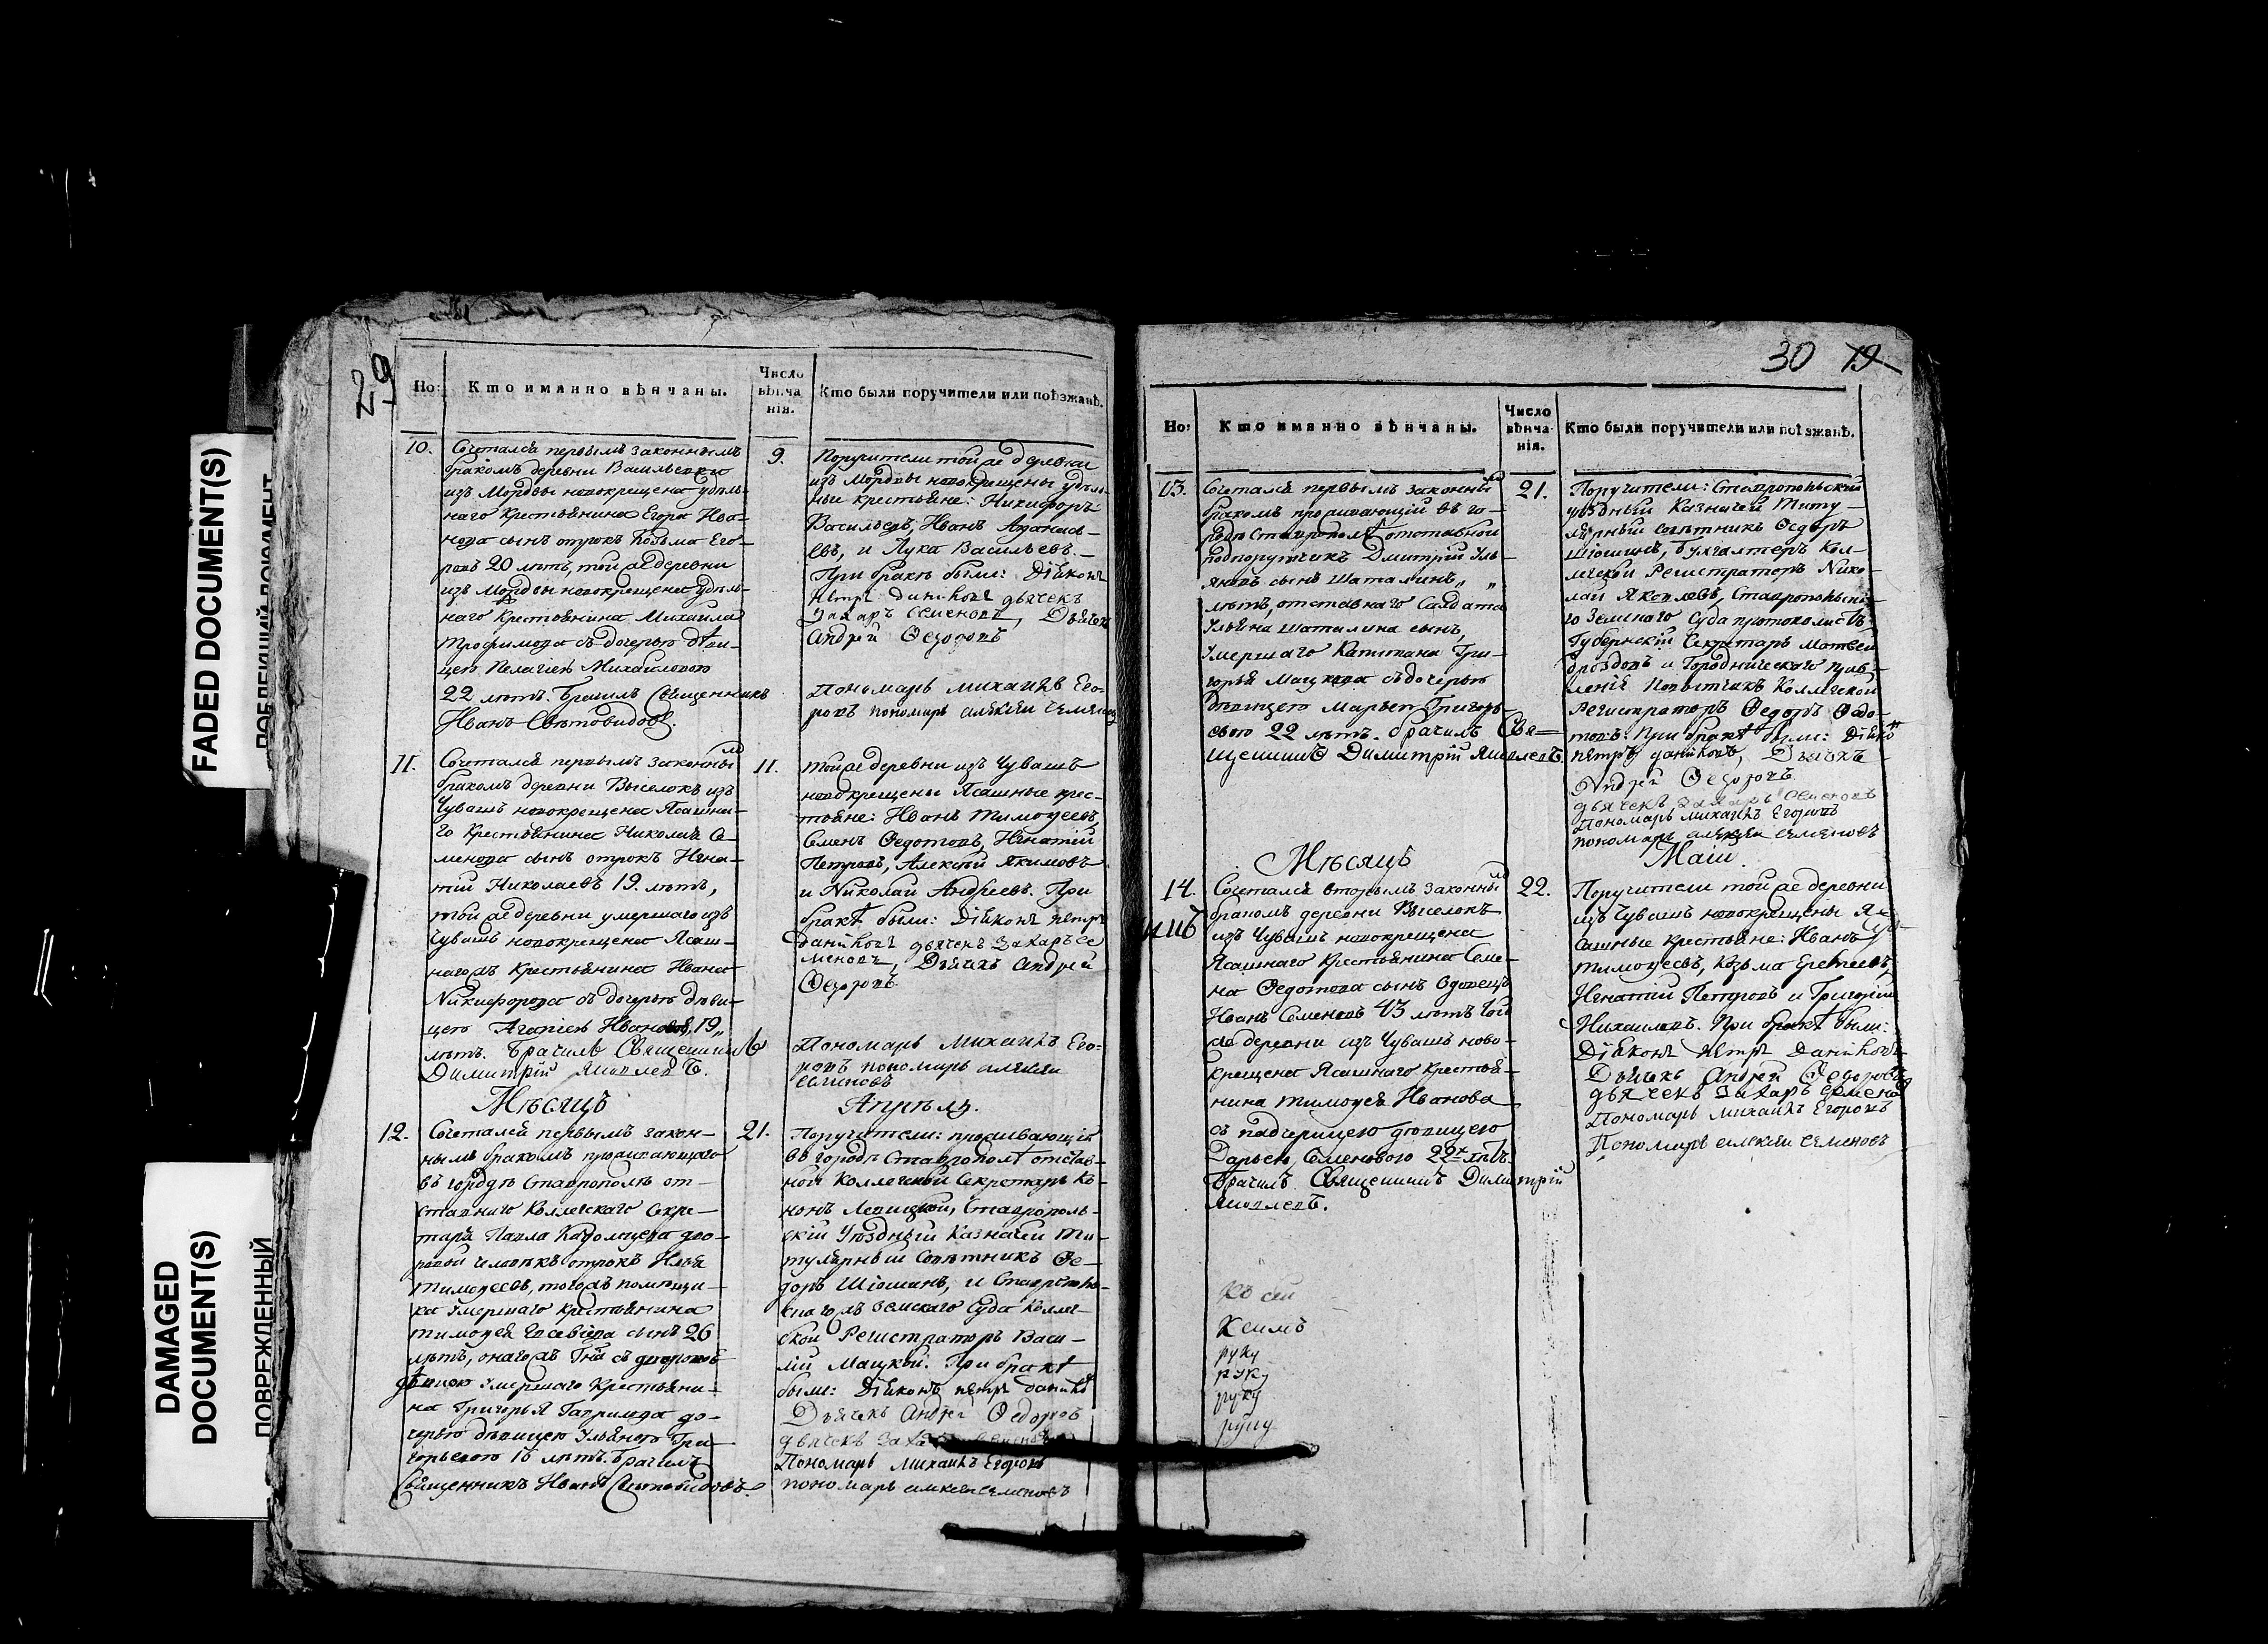 FADED DOCUMENT(S)
DAMAGED
DOCUMENT(S)
ПОВРЕЖДЕННЫЙ
29
Но:
Кто имянно вѣнчаны.
Число
вѣнча
нія.
Кто были поручители или поѣзжанѣ.
10.
Сочетался первымъ законнымъ
бракомъ деревни Васильевки
изъ Мордвы новокрещена удѣль-
наго Крестьянина Егора Ива-
нова сынъ отрокъ Козьма Его-
ровъ 20 лѣтъ, той же деревни
изъ Мордвы новокрещена удѣль-
наго Крестьянина Михаила
Трофимова съ дочерью дѣви-
цею Пелагіею Михайловою
22 лѣтъ. Брачилъ Священникъ
Иванъ Свѣтовидовъ.
9.
Поручители той же деревни
изъ Мордвы новокрещены удѣль-
ные крестьяне: Никифоръ
Васильевъ, Иванъ Афанась-
евъ, и Лука Васильевъ.
При бракѣ были: Діаконъ
петръ даниловъ дьячекъ
Захаръ Семеновъ, Дьячекъ
Андрей Ѳедоровъ
Пономарь Михаилъ Его-
ровъ пономарь алексѣй семеновъ
11.
Сочетался первымъ законнымъ
бракомъ деревни Выселокъ изъ
Чувашъ новокрещена Ясашна-
го Крестьянина Николая Се-
менова сынъ отрокъ Игна-
тій Николаевъ 19. лѣтъ,
той же деревни умершаго изъ
Чувашъ новокрещена Ясаш-
нагожъ Крестьянина Ивана
Никифорова съ дочерью дѣви-
цею Агапіею Ивановой, 19„
лѣтъ. Брачилъ Священникъ
Димитрій Яковлевъ.
11.
Той же деревни изъ Чувашъ
новокрещены Ясашные крес-
тьяне: Иванъ Тимоѳеевъ,
Семенъ Ѳедотовъ, Игнатій
Петровъ, Алексѣй Якимовъ
и Николай Андреевъ. При
бракѣ были: Діаконъ петръ
даниловъ дьячекъ Захаръ Се
меновъ, Дьячекъ Андрей
Ѳедоровъ
Пономарь Михаилъ Его-
ровъ пономарь алексѣй
семеновъ
Мѣсяцъ
Апрѣль.
12.
Сочетался первымъ закон-
нымъ бракомъ проживающаго
въ городѣ Ставрополѣ от-
ставнаго Коллежскаго Секре-
таря Павла дво-
ровой человѣкъ отрокъ Илья
Тимоѳеевъ, тогожъ помѣщи-
ка умершаго Крестьянина
Тимоѳея сынъ 26
лѣтъ, онагожъ Гна съ дворовою
дѣвкою умершаго Крестьяни-
на Григорья Гаврилова до-
черью дѣвицею Ульяною Гри-
горьевою 16 лѣтъ. Брачилъ
Священникъ Иванъ Свѣтовидовъ.
21.
Поручители: проживающій
въ городѣ Ставрополѣ отстав-
ной Коллежской Секретарь Ко-
нонъ Левицкой, Ставрополь-
скій Уѣздный Казначей Ти-
тулярный Совѣтникъ Ѳе-
доръ Шіошинъ, и Ставрополь-
скагожъ Земскаго Суда Коллеж-
ской Регистраторъ Васи-
лій Мацкой. При бракѣ
были: Діаконъ петръ даниловъ
Дьячекъ Андрей Ѳедоровъ
дьячекъ Захаръ Семеновъ
Пономарь Михаилъ Егоровъ
пономарь алексѣй семеновъ
30 19
Но:
Кто имянно вѣнчаны.
Число
вѣнча
нія.
Кто были поручители или поѣзжанѣ.
13.
Сочетался первымъ законнымъ
бракомъ проживающій въ го-
родѣ Ставрополѣ отставной
подпорутчикъ Дмитрій Уль-
яновъ сынъ Шаталинъ„ „
лѣтъ, отставнаго Салдата
Ульяна Шаталина сынъ,
умершаго Капитана Гри-
горья Мацкова съ дочерью
дѣвицею Марьею Григорь-
евою 22 лѣтъ. брачилъ Свя-
щенникъ Димитрій Яковлевъ.
21.
Поручители: Ставропольскій
уѣздный Казначей Титу-
лярный совѣтникъ Ѳедоръ
Шіошинъ, Бухгалтеръ Кол-
лежской Регистраторъ Нико-
лай Яковлевъ, Ставропольска-
го Земскаго Суда протоколистъ
Губернскій Секретарь Матвей
Дроздовъ и Городническаго прав-
ленія Повытчикъ Коллежской
Регистраторъ Ѳедоръ Ѳедо-
товъ. При бракѣ были: Діаконъ
петръ даниловъ, Дьячекъ
Андрей Ѳедоровъ
дьячекъ Захаръ Семеновъ
Пономарь Михаилъ Егоровъ
пономарь алексѣй семеновъ
Мѣсяцъ
Маій.
14.
Сочетался вторымъ законнымъ
бракомъ деревни Выселокъ
изъ Чувашъ новокрещена
Ясашнаго Крестьянина Семе-
на Ѳедотова сынъ вдовецъ
Иванъ Семеновъ 43 лѣтъ той
же деревни изъ Чувашъ ново-
крещена Ясашнаго крестья-
нина Тимоѳея Иванова
съ падчерицею дѣвицею
Дарьею Семеновою 22хъ лѣтъ.
Брачилъ Священникъ Димитрій
Яковлевъ.
22.
Поручители той же деревни
изъ Чувашъ новокрещены Я-
сашные крестьяне: Иванъ
Тимоѳеевъ, Козьма Еремеевъ,
Игнатій Петровъ и Григорій
Михайловъ. При бракѣ были:
Діаконъ петръ Даниловъ
Дьячекъ Андрей Ѳедоровъ
дьячекъ Захаръ Семено
Пономарь Михаилъ Егоровъ
Пономарь алексѣй семеновъ
Къ сей
Ксимъ
руку
руку
руку
руку